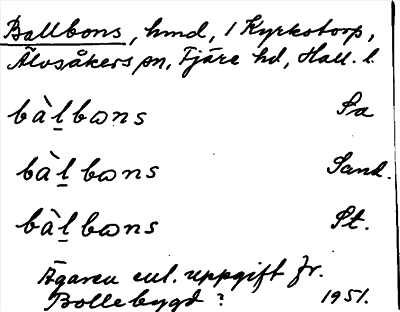 Ballbons, hmd, 1 Kyrkstorp,
Älvsåkers sn, Fjäre hd, Hall. l.
bàl̠bωns Sa
bàl̠bωns Sand.
bàl̠bωns St.
Ägaren enl. uppgift fr.
Bollebygd? 1951.